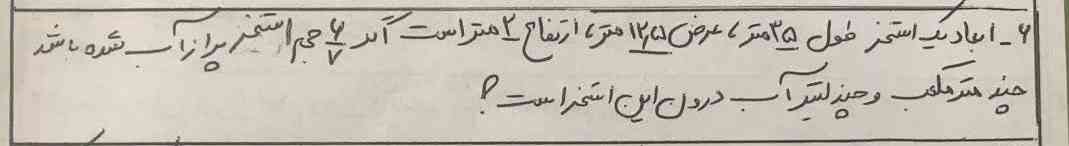 ۶- ابعاد یک استخر طول ۳۵ متر، عرض ۱۲٫۵ متر، ارتفاع ۲ متر است اگر ۶/۷ حجم استخر پر از آب شده باشد
چند متر مکعب و چند لیتر آب درون این استخر است؟